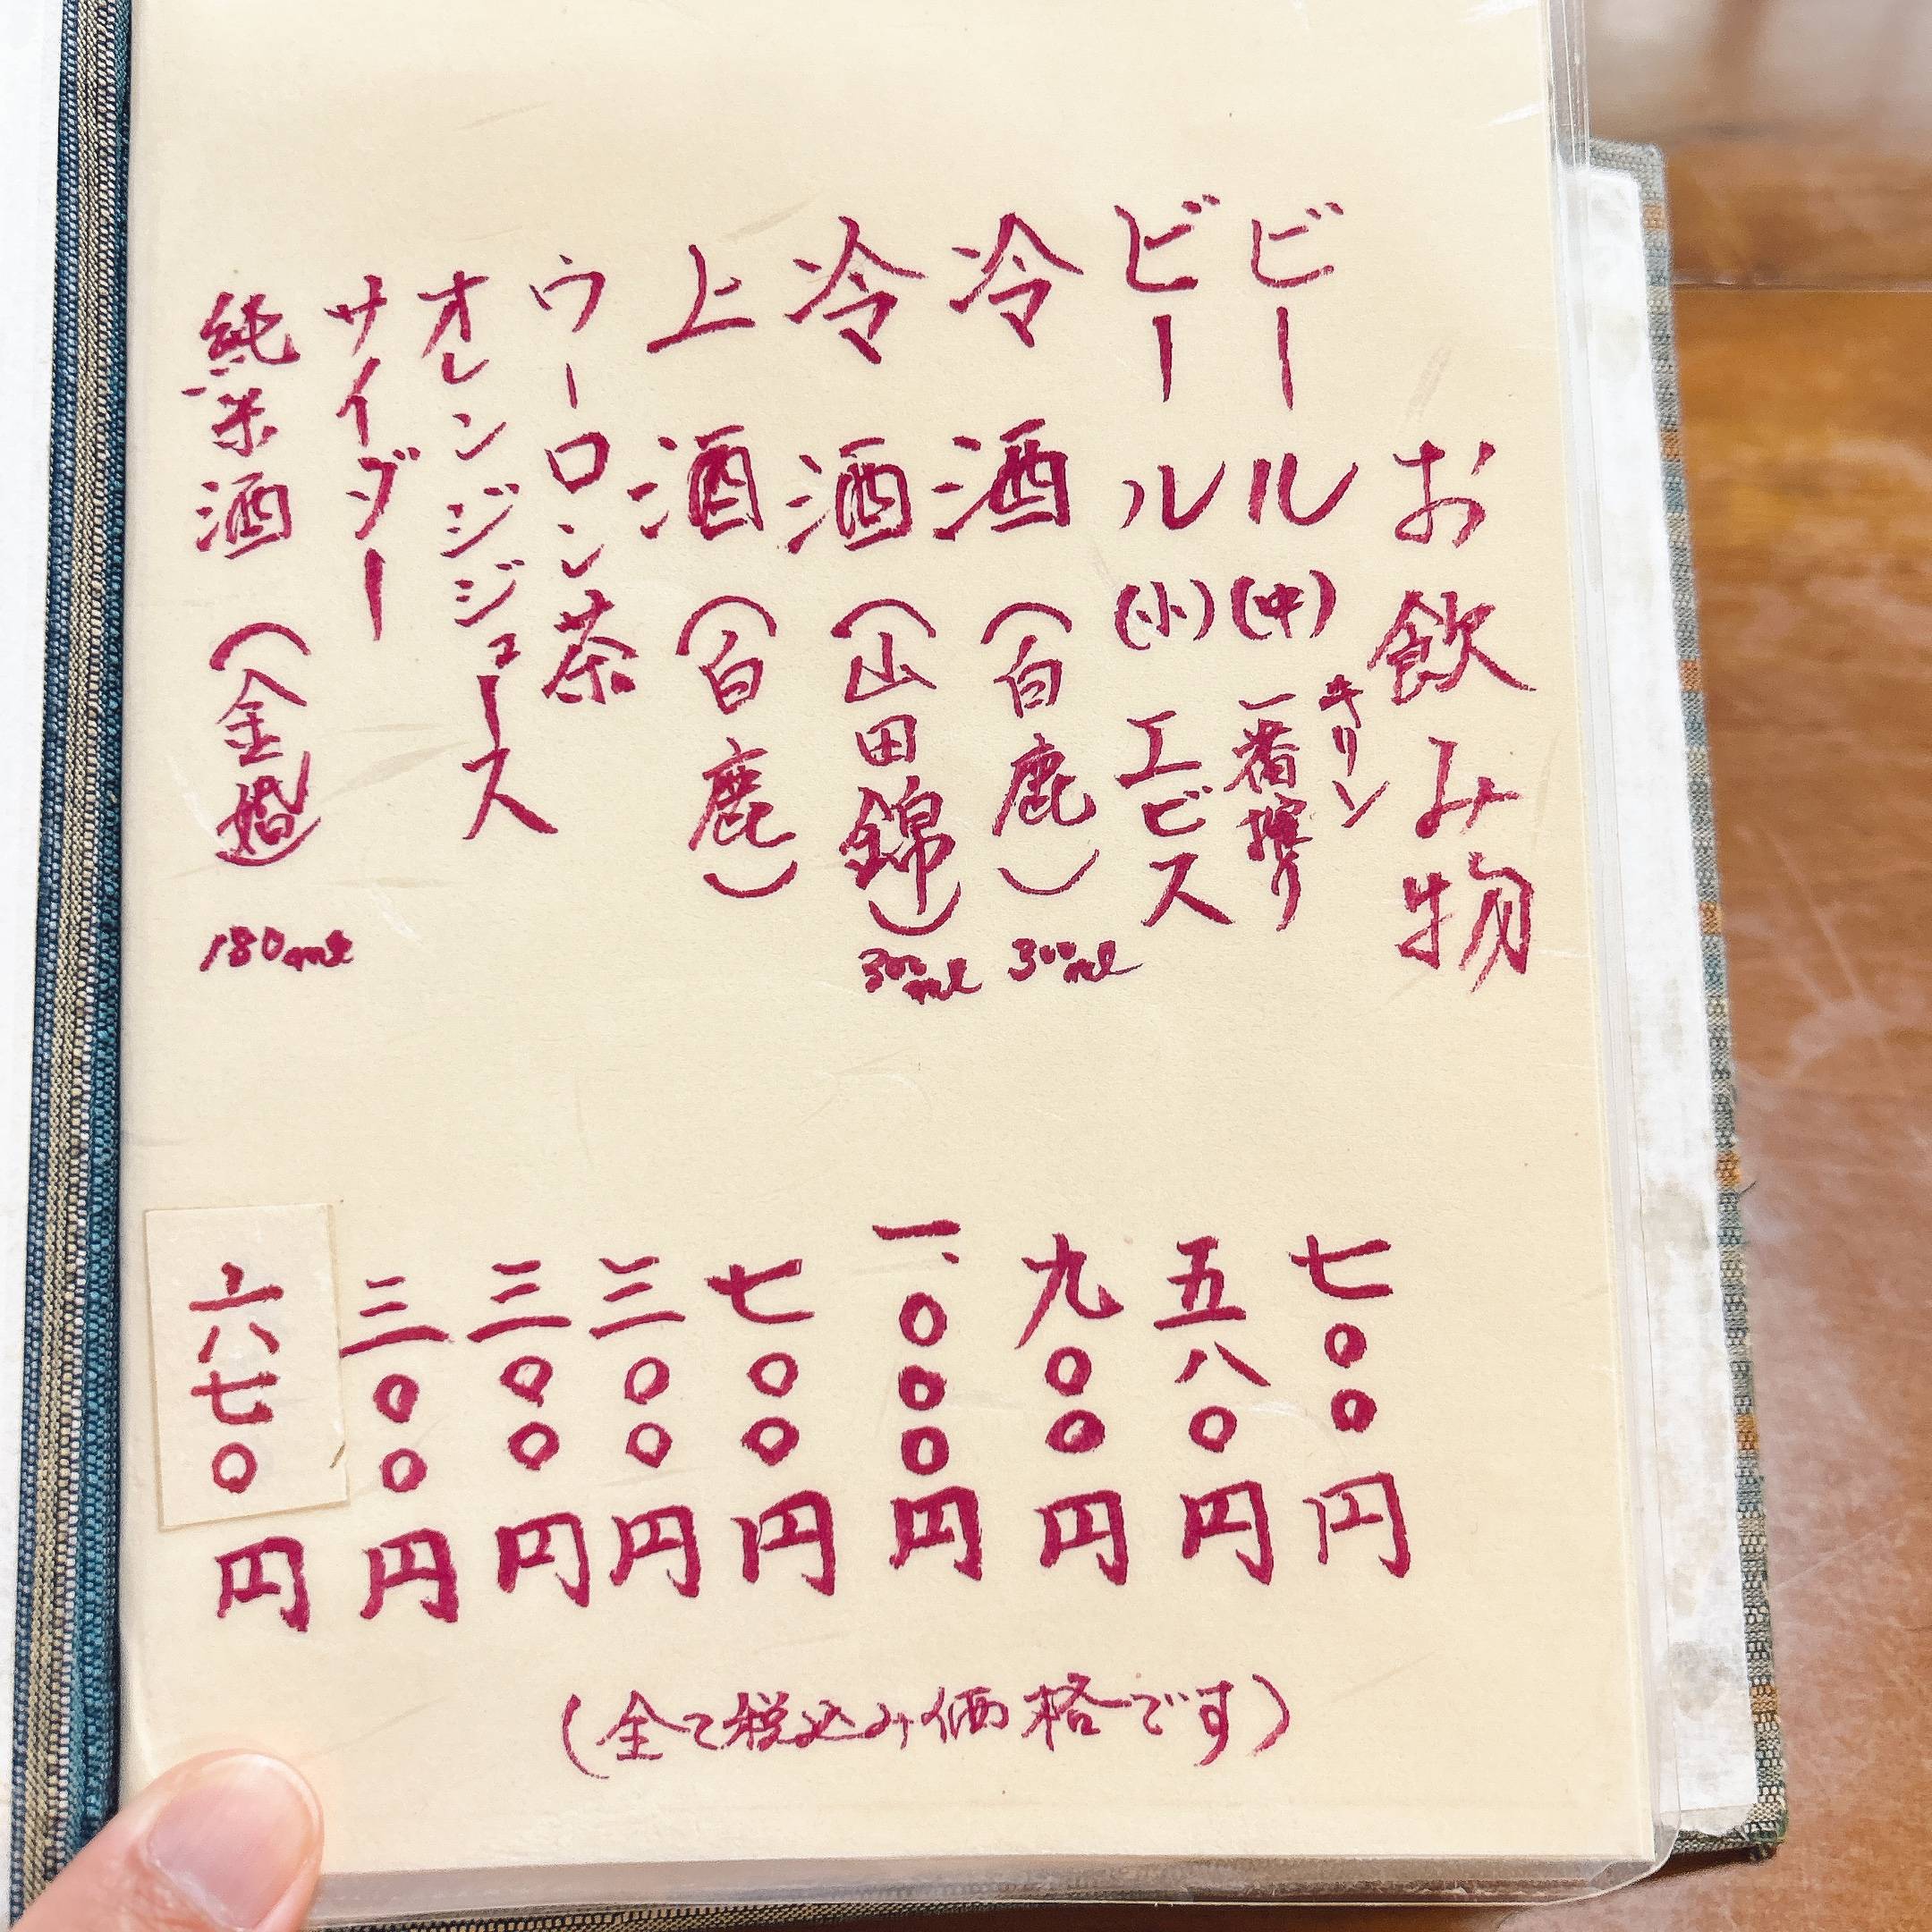 お飲み物
ビール(中) キリン一番搾り 七〇〇円
ビール(小) エビス 五八〇円
冷酒(白鹿) 300ml 九〇〇円
冷酒(山田錦) 300ml 一、〇〇〇円
上酒(白鹿) 七〇〇円
ウーロン茶 三〇〇円
オレンジジュース 三〇〇円
サイダー 三〇〇円
純米酒(金婚) 180ml 六七〇円
(全て税込み価格です)